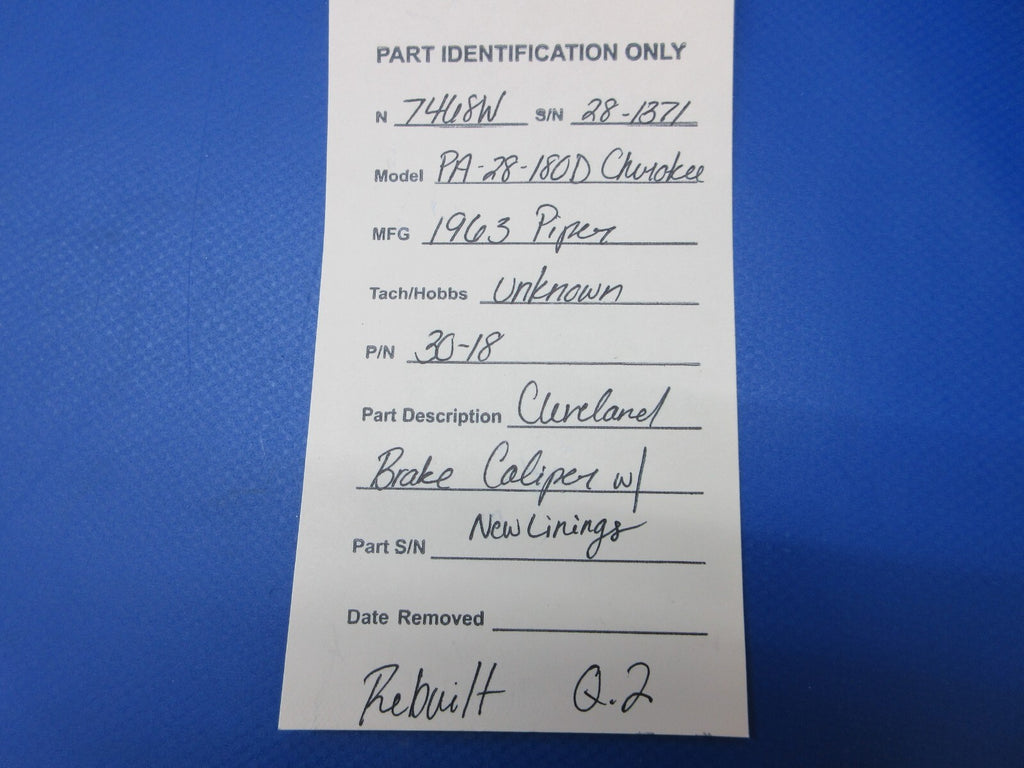 PART IDENTIFICATION ONLY
N 7468W S/N 28-1371
Model PA-28-180D Cherokee
MFG 1963 Piper
Tach/Hobbs Unknown
P/N 30-18
Part Description Cleveland
Brake Caliper w/
New Linings
Part S/N
Date Removed
Rebuilt Q.2